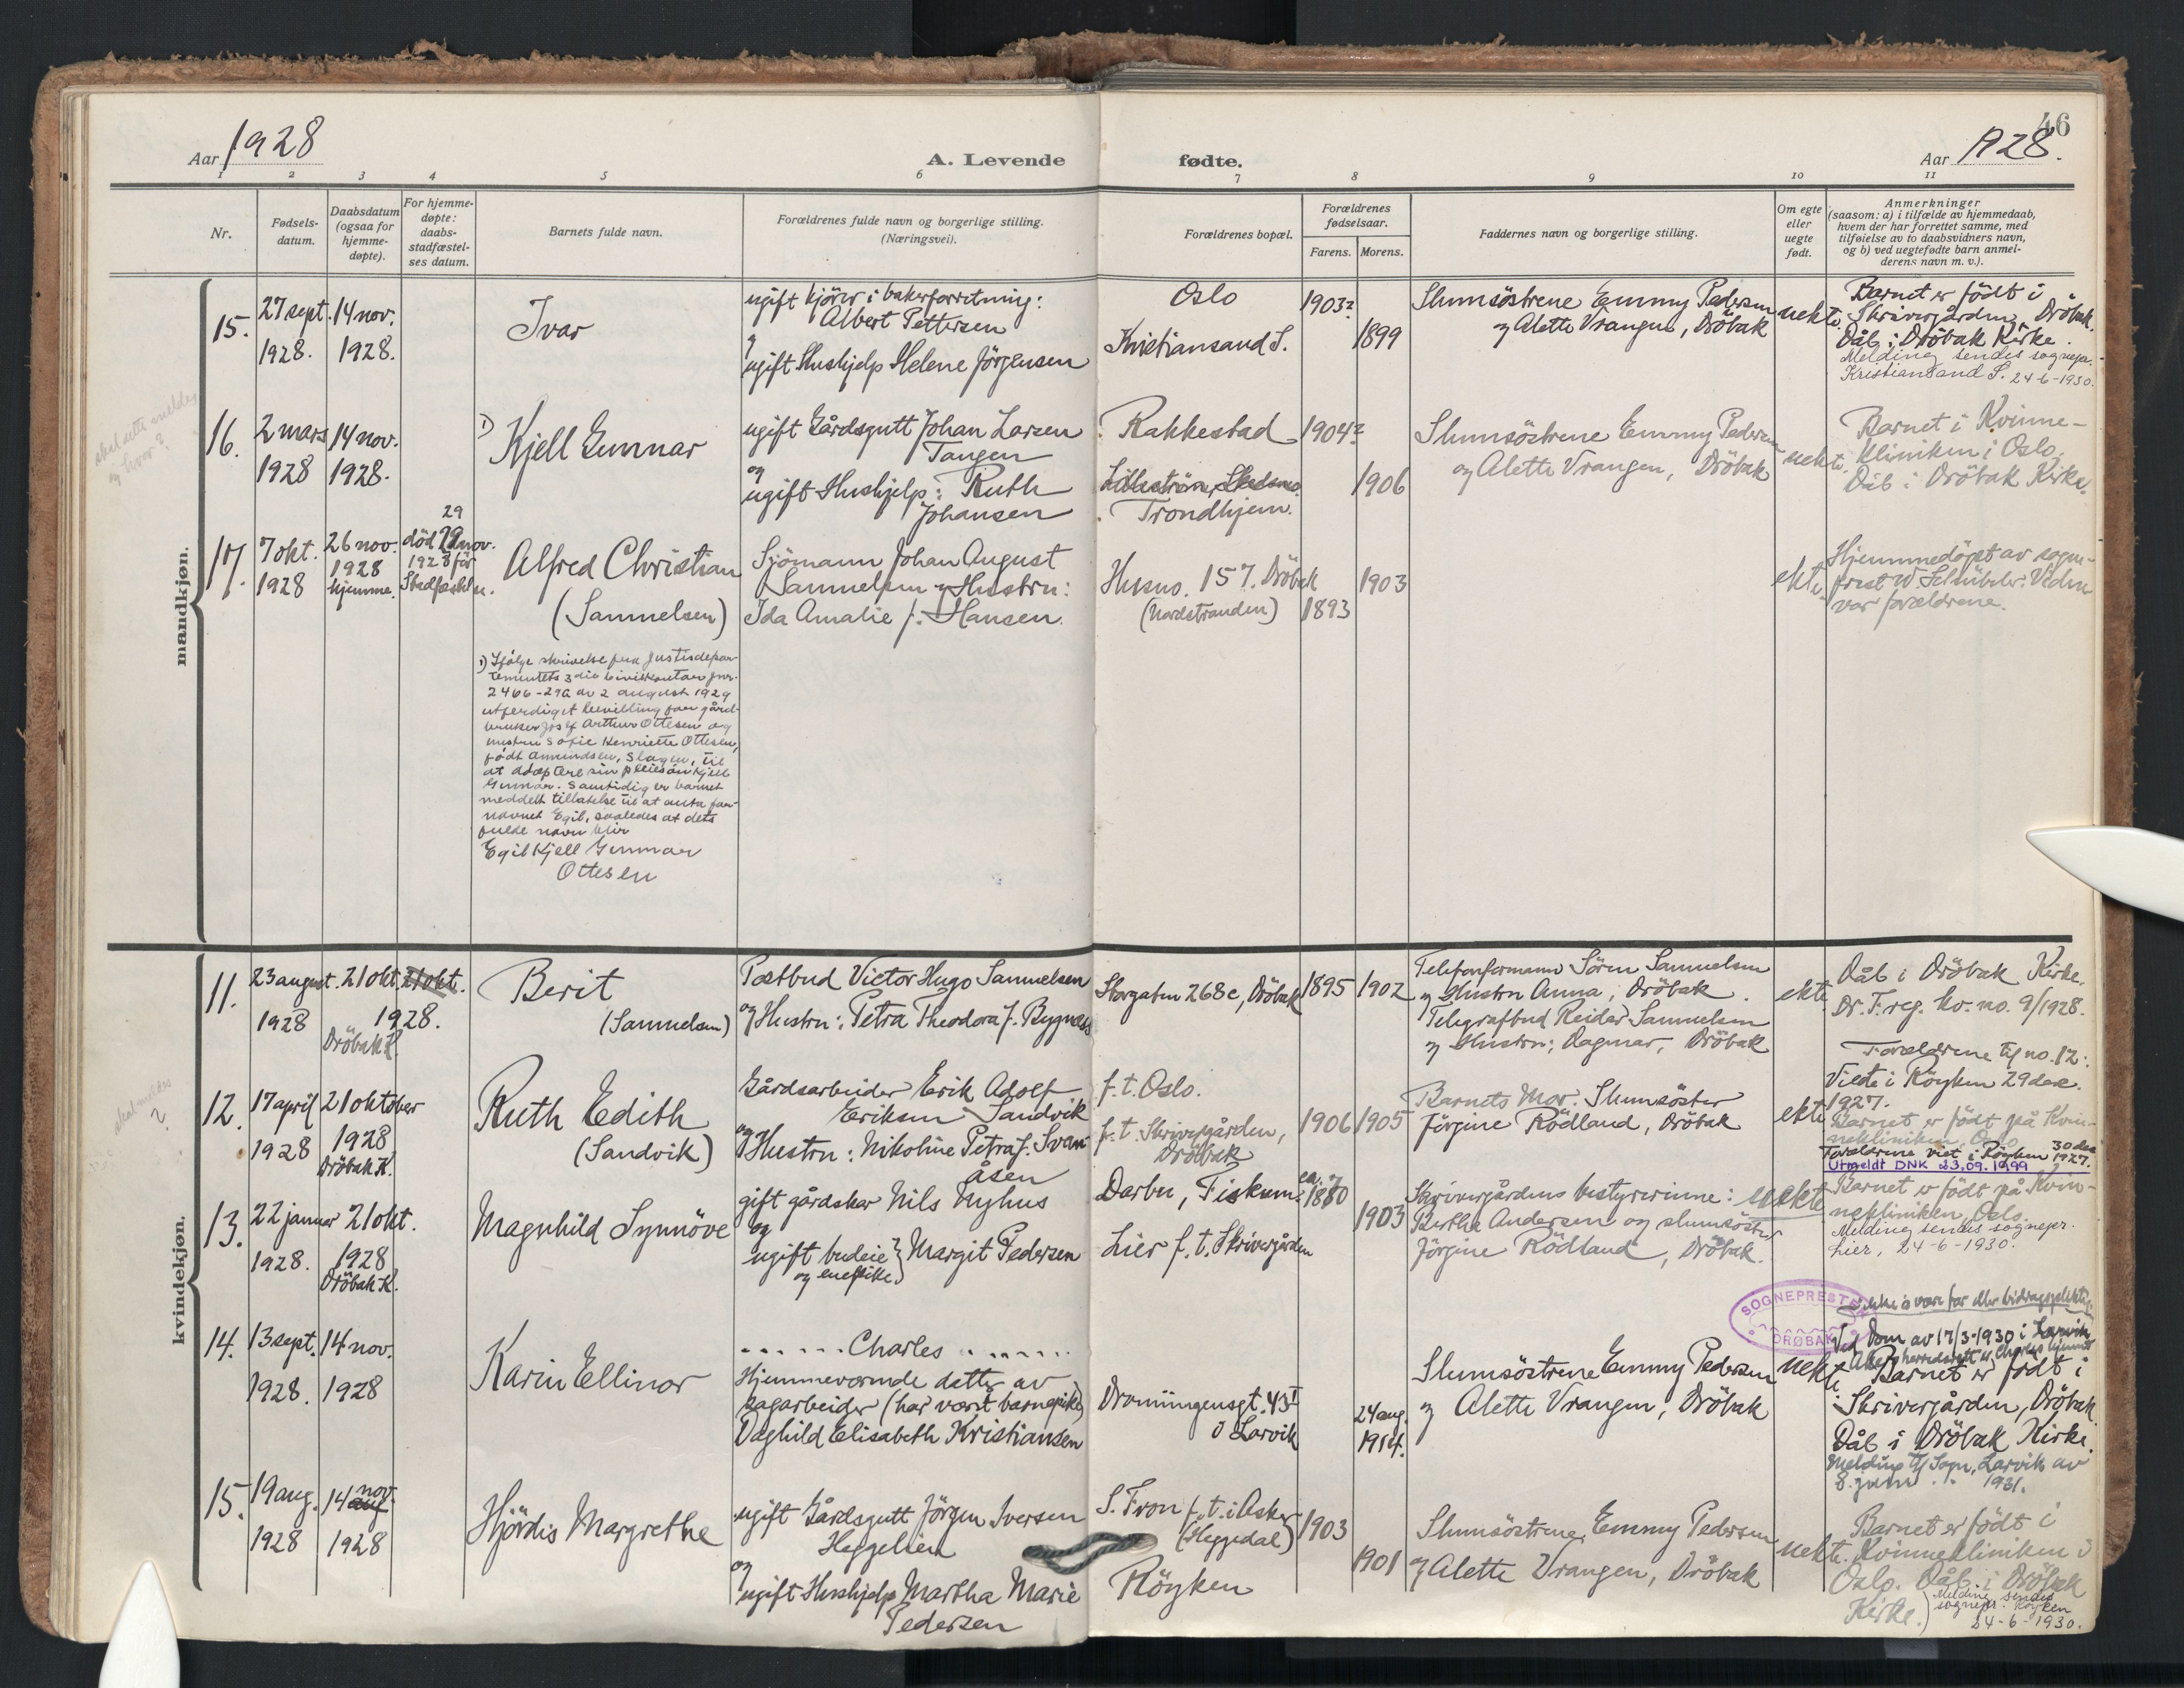 Aar 1928
A. Levende
fødte.
46
Aar 1928.
1 2 3 4 5 6 7 8 9 10 11
Nr.
Fødsels-
datum.
Daabsdatum
(ogsaa for
hjemme-
døpte).
For hjemme-
døpte:
daabs-
stadfæstel-
ses datum.
Barnets fulde navn.
Forældrenes fulde navn og borgerlige stilling.
(Næringsvei).
Forældrenes bopæl.
Forældrenes
fødselsaar.
Farens. Morens.
Faddernes navn og borgerlige stilling.
Om egte
eller
uegte
født.
Anmerkninger
(saasom: a) i tilfælde av hjemmedaab,
hvem der har forrettet samme, med
tilføielse av to daabsvidners navn,
og b) ved uegtefødte barn anmel-
derens navn m. v.).
mandkjøn.
15.
27 sept.
1928.
14 nov.
1928.
Ivar
ugift kjörer i bakerforretning:
Albert Pettersen
og
ugift Hushjelp Helene Jörgensen
Oslo
Kristiansand S.
1903?
1899
Slumsöstrene Emmy Pedersen
og Alette Vrangen, Dröbak
uekte.
Barnet er födt i
Skrivergården, Dröbak.
Dåb i Dröbak Kirke.
Melding sendes sognepr.
Kristiansand S. 24-6-1930.
skal dette meldes
og hvor?
16.
2 mars
1928
14 nov.
1928.
1)
Kjell Gunnar
ugift Gårdsgutt Johan Larsen
Tangen
og
ugift Hushjelp: Ruth
Johansen
Rakkestad
Lilleström, Skedsmo.
Trondhjem.
1904?
1906
Slumsöstrene Emmy Pedersen
og Alette Vrangen, Dröbak
uekte.
Barnet i Kvinne-
kliniken i Oslo.
Dåb i Dröbak Kirke.
17.
7 okt.
1928
26 nov.
1928
hjemme.
29
död 29 nov.
1928 för
Stadfestelsen.
Alfred Christian
(Samuelsen)
Sjömann Johan August
Samuelsen og Hustru:
Ida Amalie f. Hansen.
Husno. 157. Dröbak
(Nordstranden)
1893
1903
ekte.
Hjemmedöpt av sogne-
prest W Schübeler. Vidner
var forældrene.
1) Ifölge skrivelse fra Justisdepar-
tementets 3die Civilkontor jnr.
2466-29A av 2 august 1929
utferdiget bevilling for gård-
bruker Josef Arthur Ottesen og
hustru Sofie Henriette Ottesen,
født Amundsen, Slagen, til
at adoptere sin pleiesön Kjell
Gunnar. Samtidig er barnet
meddelt tillatelse til at anta for-
navnet Egil, saaledes at dets
fulde navn blir
Egil Kjell Gunnar
Ottesen
kvindekjøn.
11.
23 august.
1928
21 okt.
21 okt.
1928.
Dröbak K.
Berit
(Samuelsen)
Postbud Victor Hugo Samuelsen
og Hustru: Petra Theodora f. Bygnæss
Storgaten 268c, Dröbak
1895
1902
Telefonformann Sören Samuelsen
og Hustru Anna, Dröbak.
Telegrafbud Reidar Samuelsen
og Hustru; Dagmar, Dröbak
ekte
Dåb i Dröbak Kirke.
Dr. F. reg. ko. no. 9/1928.
Forældrene til no. 12:
Viede i Röyken 29 des.
1927.
skal meldes
?
12.
17 april
1928
21 oktober
1928
Dröbak K.
Ruth Edith
(Sandvik)
Gårdsarbeider Erik Adolf
Eriksen Sandvik
og
Hustru: Nikoline Petra f. Svan-
åsen
f. t. Oslo.
f. t. Skrivergården,
Dröbak
1906
1905
Barnets Mor. Slumsöster
Jörgine Rödland, Dröbak
ekte
Barnet er födt på Kvin-
nekliniken, Oslo
Forældrene viet i Röyken 30 des 1927.
Utmeldt DNK 23.09.1999
13.
22 januar
1928.
21 okt.
1928
Dröbak K.
Magnhild Synnöve
gift gårdskar Nils Nyhus
og
ugift budeie
og enepike
Margit Pedersen
Darbu, Fiskum
Lier f. t. Skrivergården
ca.
1880
1903
Skrivergårdens bestyrerinne:
Bertha Andersen og slumsöster
Jörgine Rödland, Dröbak.
uekte
Barnet er födt på Kvin-
nekliniken, Oslo.
Melding sendes sognepr.
Lier, 24-6-1930.
SOGNEPRESTEN
DRØBAK
ikke å være far eller bidragspliktig.
Ved Dom av 17/3-1930 i Larvik
14.
13 sept.
1928.
14 nov.
1928
Karin Ellinor
...... Charles ......
Hjemmeværende datter av
sagarbeider (har været barnepike)
Daghild Elisabeth Kristiansen
Dronningensgt. 43 I
Larvik
24 aug.
1914.
Slumsöstrene Emmy Pedersen
og Alette Vrangen, Dröbak
uekte.
Barnet er födt i
Skrivergården, Dröbak.
Dåb i Dröbak Kirke.
Melding til Sogn. Larvik av
8. juni 1931.
15.
19 aug.
1928
14 aug nov.
1928
Hjördis Margrethe
ugift Gårdsgutt Jörgen Iversen
Heggelien
og
ugift Hushjelp Martha Marie
Pedersen
S. Fron f. t. i Asker
(Heggedal)
Röyken
1903
1901
Slumsöstrene Emmy Pedersen
og Alette Vrangen, Dröbak
uekte.
Barnet er födt i
Kvinnekliniken i
Oslo. Dåb i Dröbak
Kirke.
Melding sendes
sognepr. Röyken
24-6-1930.